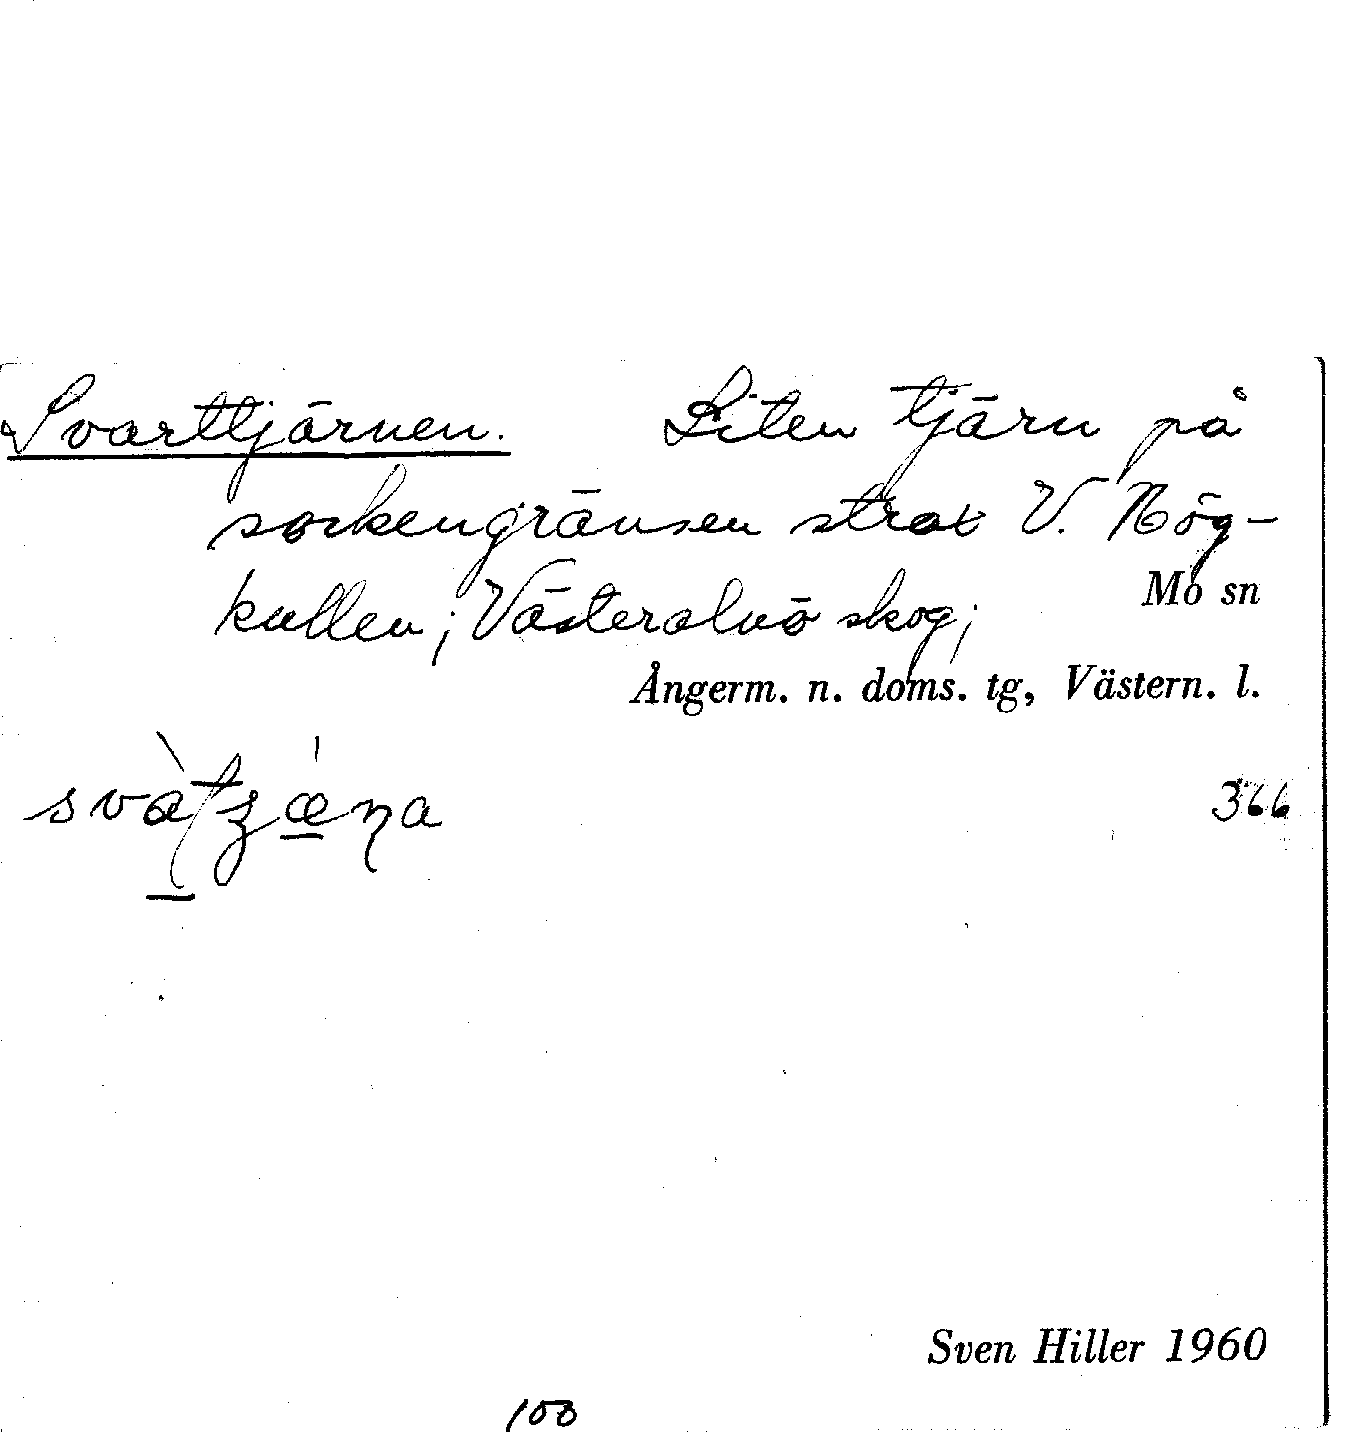 Svarttjärnen. Liten tjärn på
sockengränsen strax V. Hög-
kullen; Västeralnö skog;
Mo sn
Ångerm. n. doms. tg, Västern. l.
366
Sven Hiller 1960
100